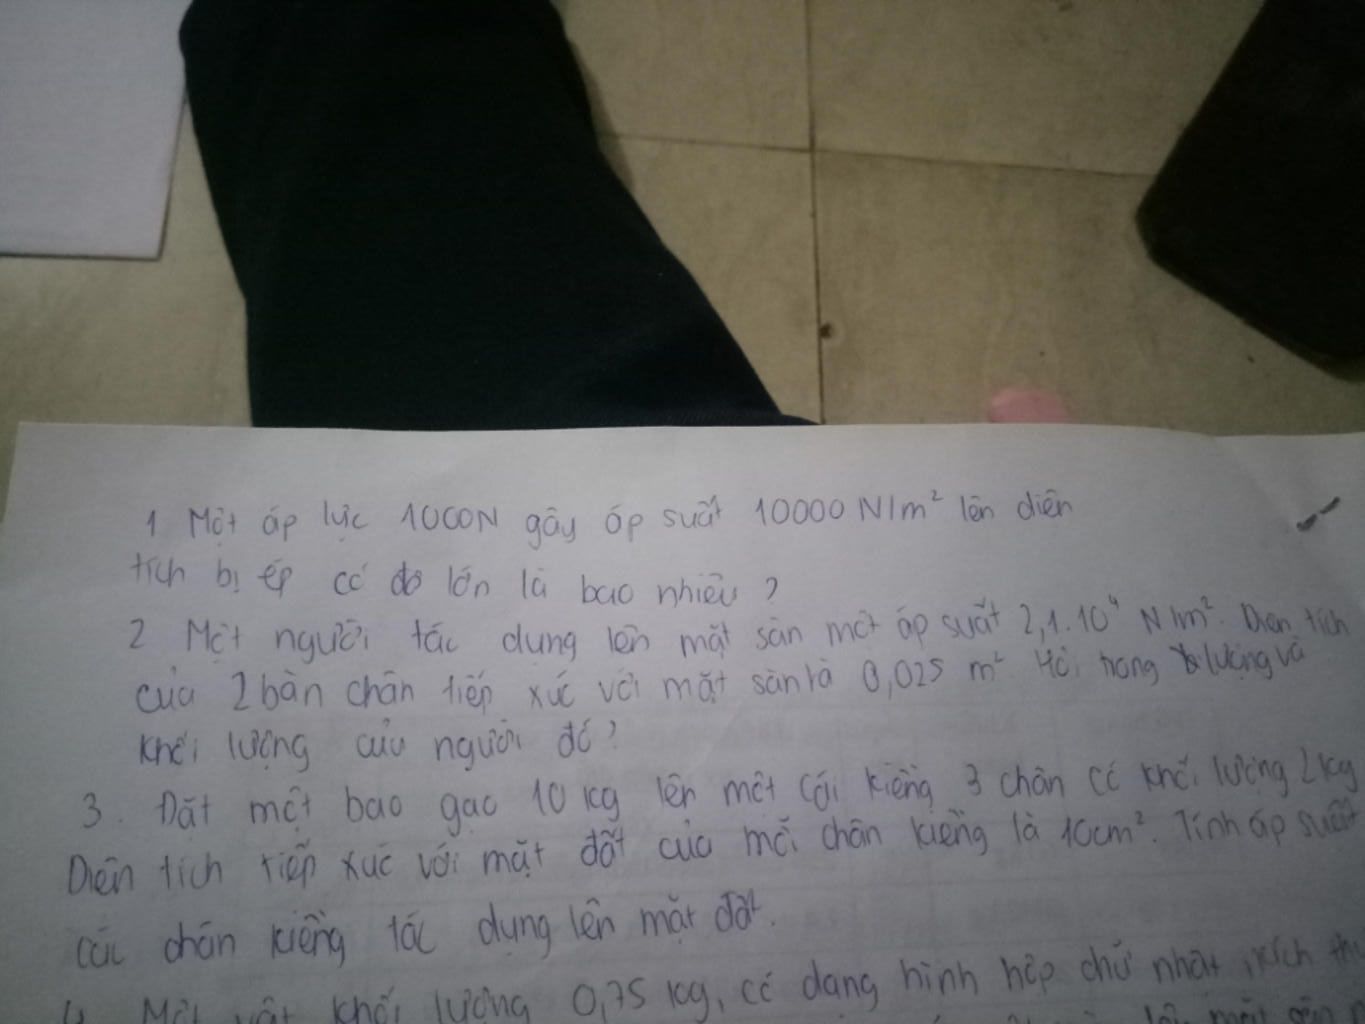 1 Một áp lực 1000N gây áp suất 10000 N/m² lên diên
tích bị ép có độ lớn là bao nhiêu ?
2 Một người tác dụng lên mặt sàn một áp suất 2,1.10⁴ N/m². Diện tích
của 2 bàn chân tiếp xúc với mặt sàn là 0,025 m². Hỏi trọng lượng và
khối lượng của người đó ?
3. Đặt một bao gạo 10 kg lên một cái kiềng 3 chân có khối lượng 2 kg
Diên tích tiếp xúc với mặt đất của mỗi chân kiềng là 10cm². Tính áp suất
các chân kiềng tác dụng lên mặt đất.
4 Một vật khối lượng 0,75 kg, có dạng hình hộp chữ nhật, kích
lên mặt sàn